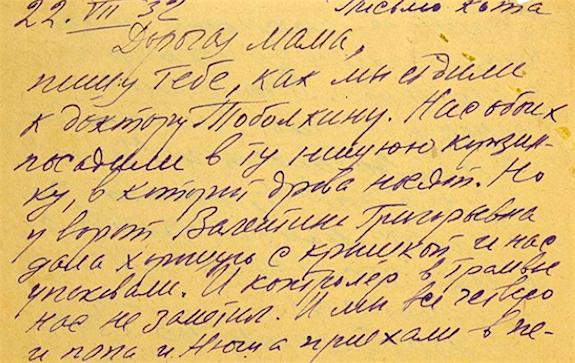 22. VII 32 Письмо кота
Дорогая мама,
пишу тебе, как мы ездили
к доктору Тоболкину. Нас обоих
посадили в ту нищую корзин-
ку, в которой дрова носят. Но
у ворот Валентина Григорьевна
дала хорошую с крышкой и нас
упаковали. И контролер в трамвае
нас не заметил. И мы все четверо
и папа и Нюша приехали в пе-